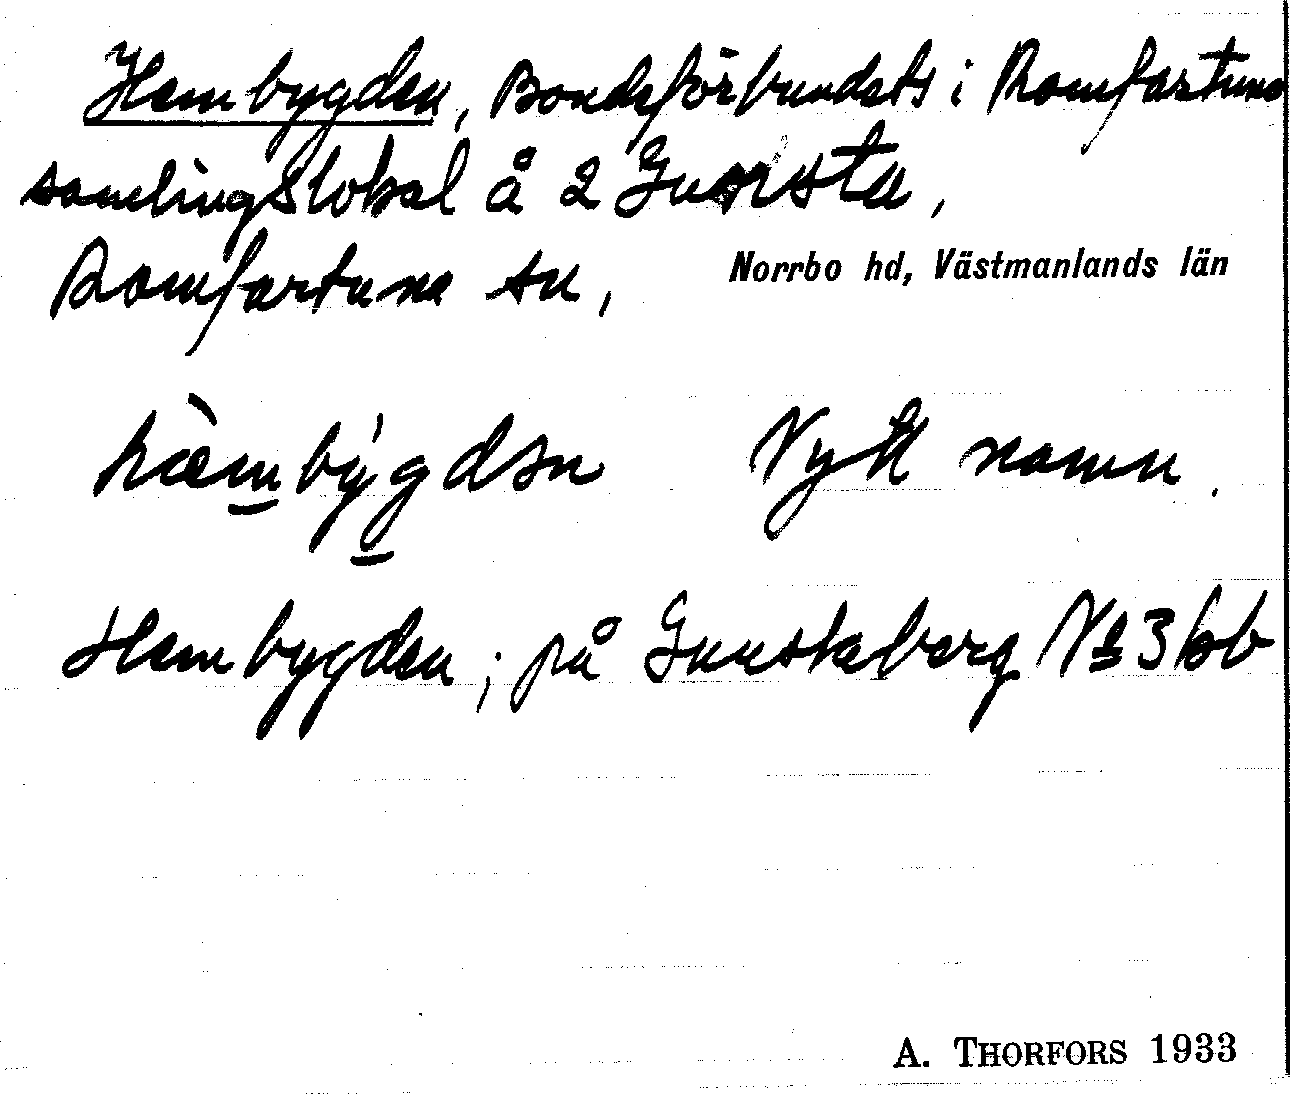 Hembygden, Bondeförbundets i Romfartuna
samlingslokal å 2 Gunsta,
Romfartuna sn, Norrbo hd, Västmanlands län
hæ̀mbýgdən Nytt namn.
Hembygden; på Gunstaberg No 3 kb
A. THORFORS 1933